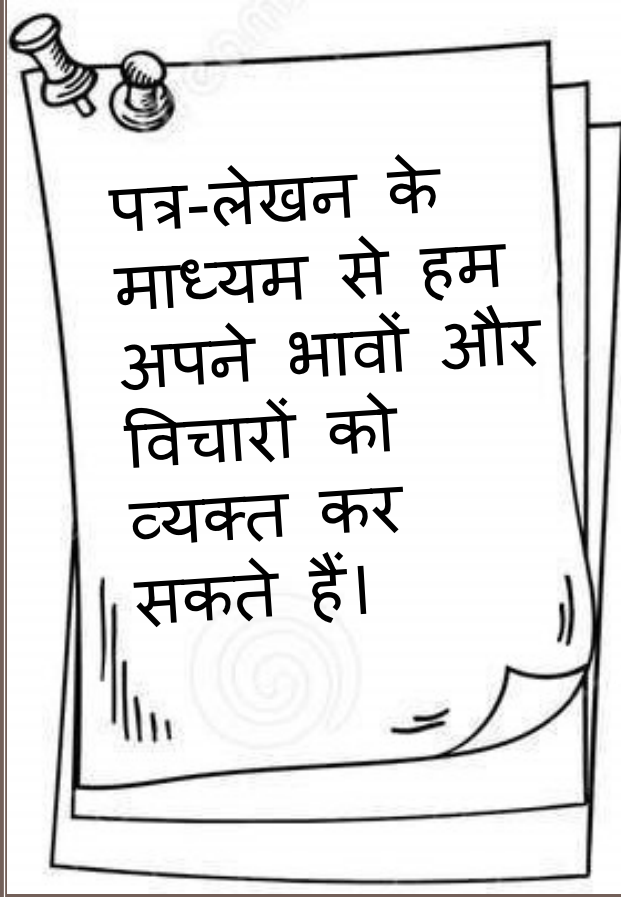 पत्र-लेखन के
माध्यम से हम
अपने भावों और
विचारों को
व्यक्त कर
सकते हैं।